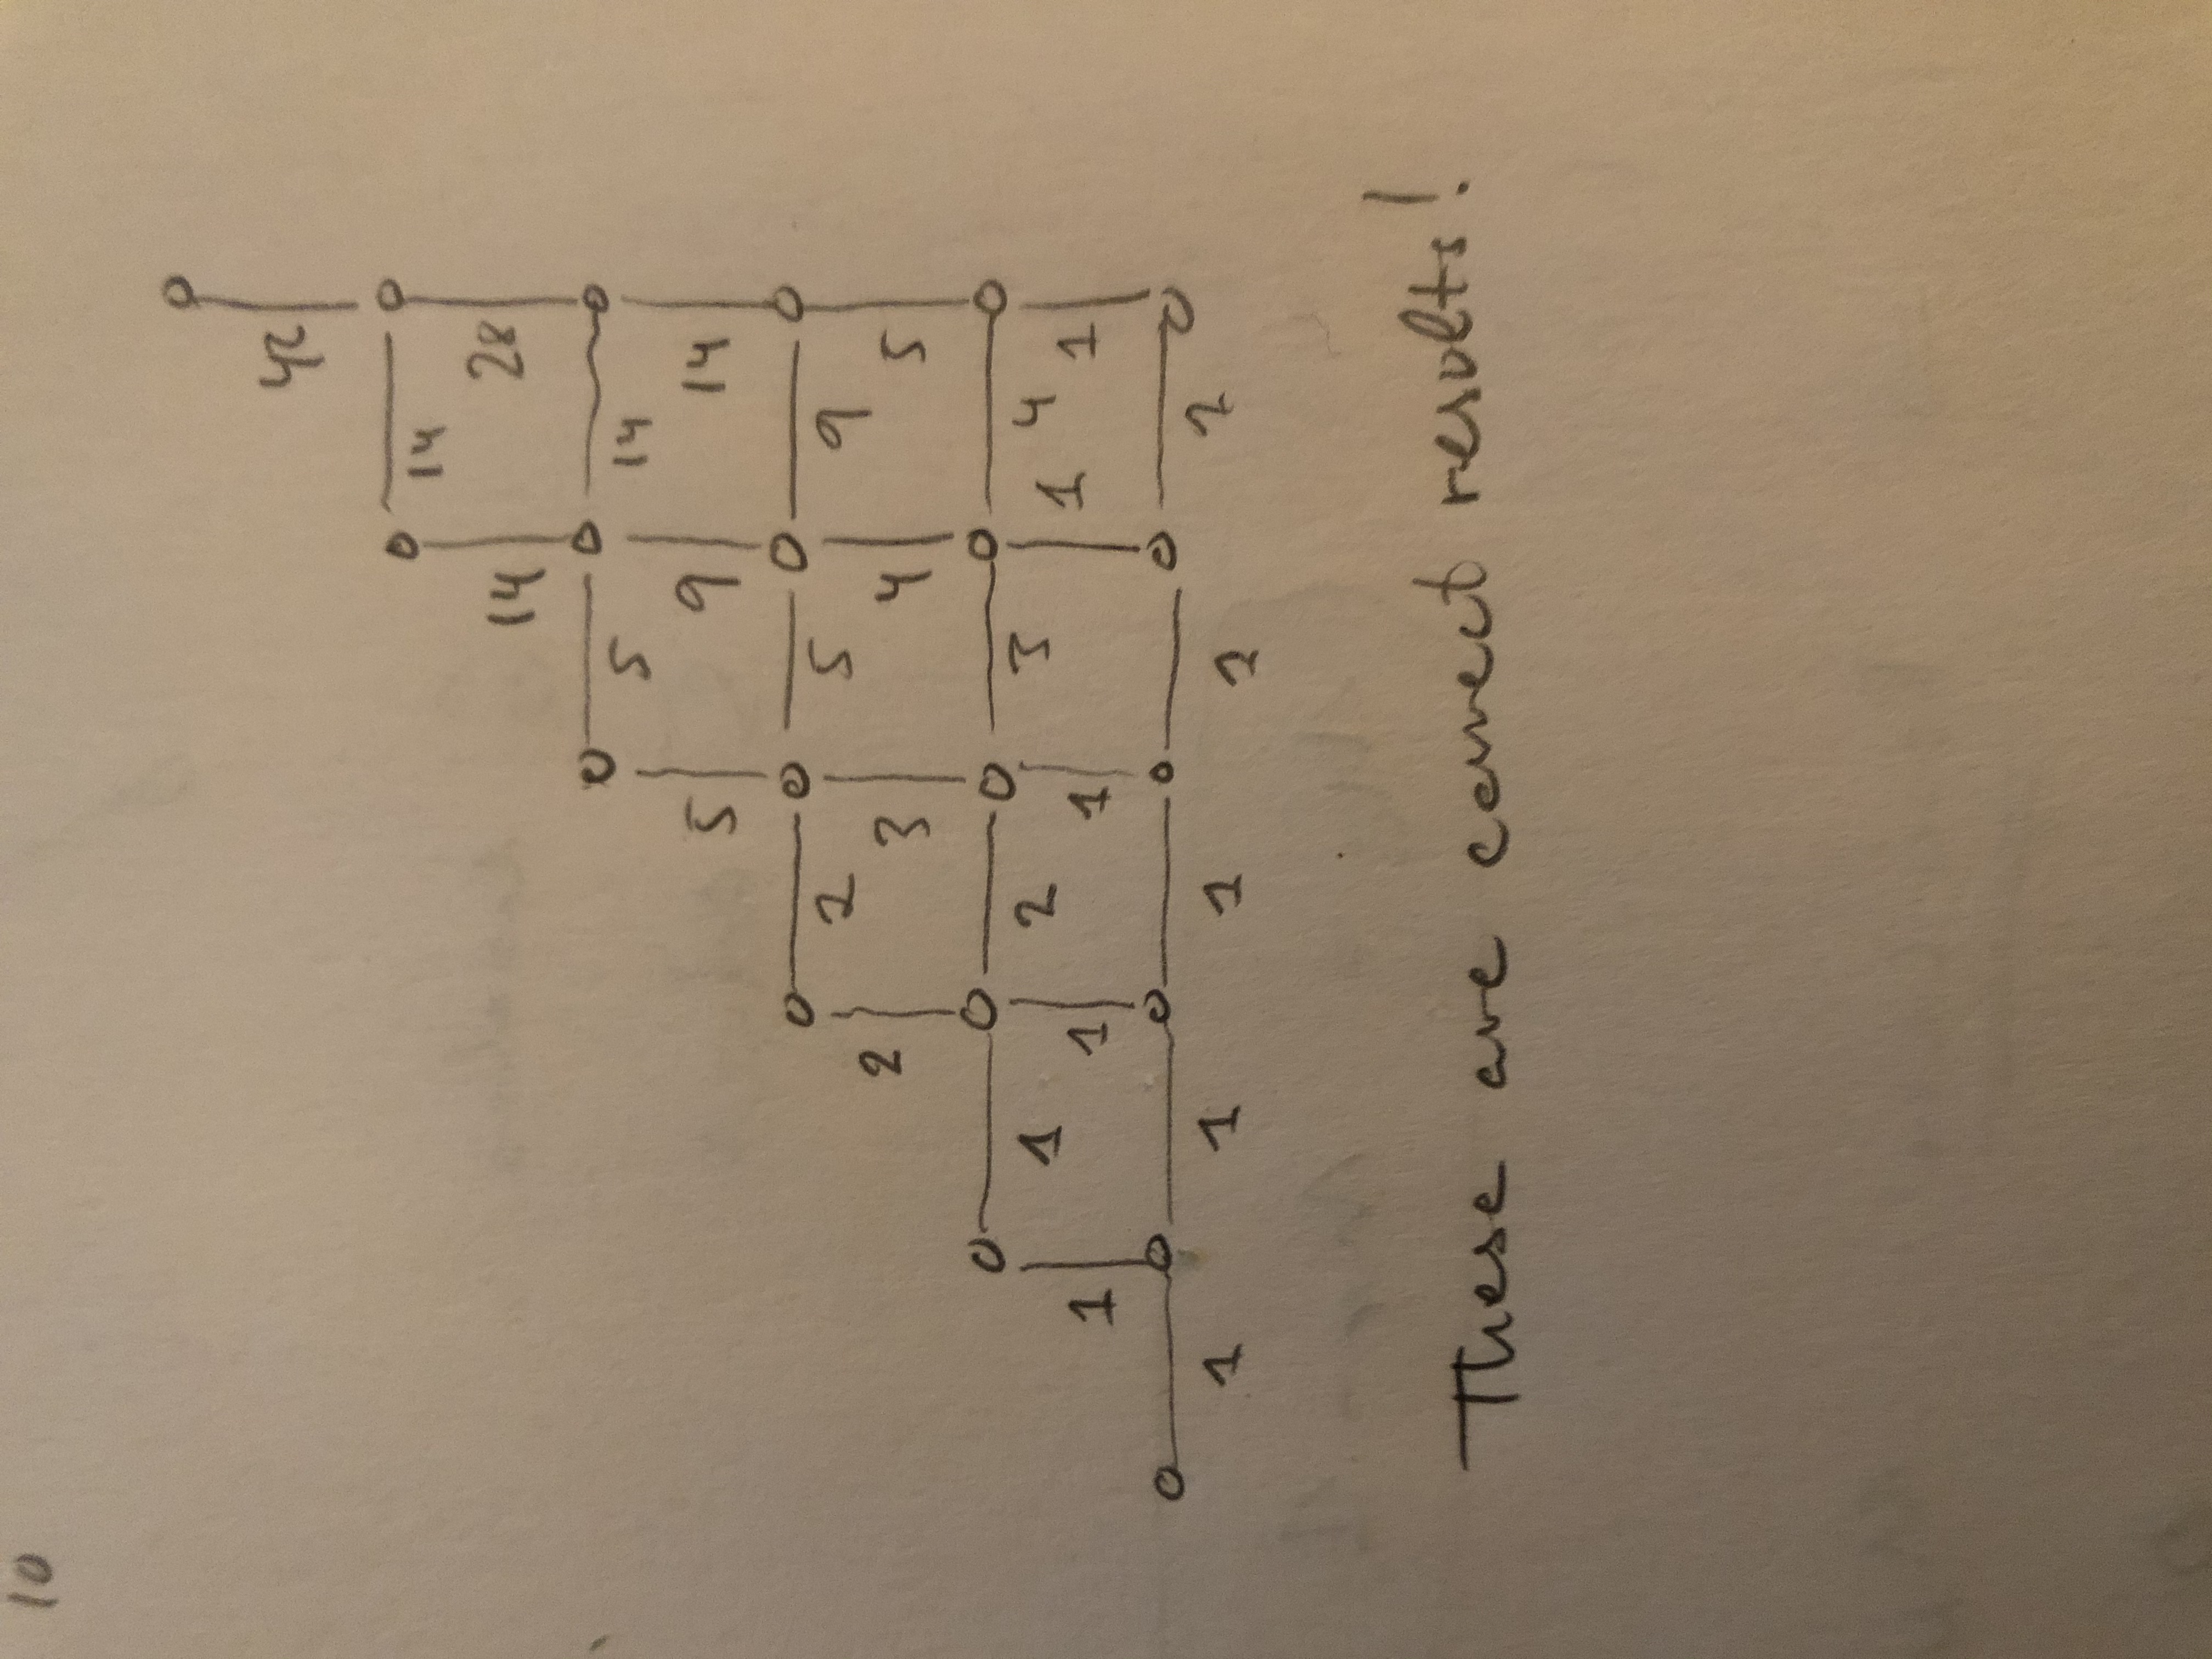 10
42
14
14 28
5 14
5 9 14
2 5 9
2 3 4 5
1 2 3 4
1 1 1 1 1
1 1 1 1 1
These are correct results!